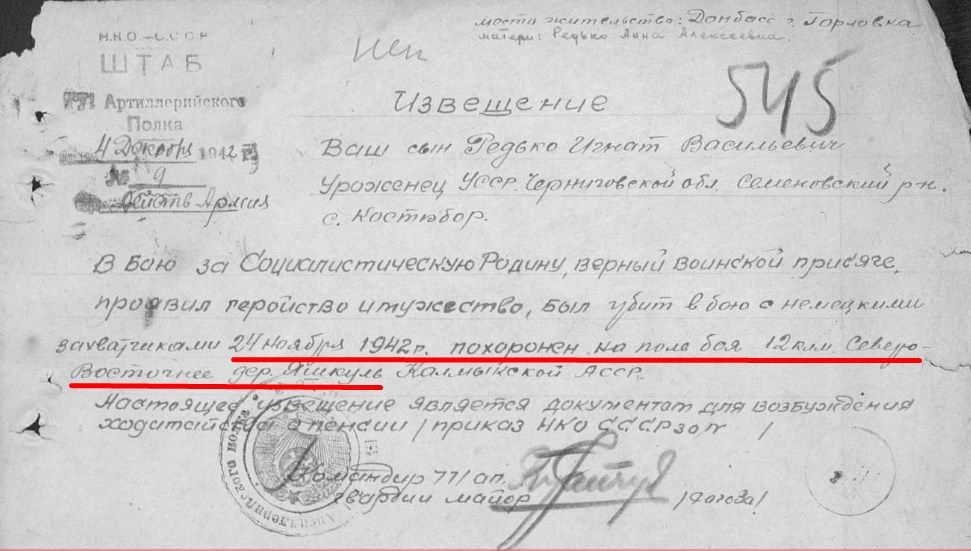 места жительства: Донбасс г. Горловка
матери: Редько Анна Алексеевна.
Н.К.О – С.С.С.Р
ШТАБ
771 Артиллерийского
Полка
4 Декабря 1942 г.
№ 9
Действ Армия
545
Извещение
Ваш сын Редько Игнат Васильевич
Уроженец УССР. Черниговской обл. Семеновский р-н.
с. Костобор.
В бою за Социалистическую Родину, верный воинской присяге,
проявил геройство и мужество, был убит в бою с немецкими
захватчиками 24 ноября 1942 г. похоронен на поле боя 12 клм. Северо-
Восточнее дер. Яшкуль Калмыкской АССР.
Настоящее извещение является документам для возбуждения
ходатайства о пенсии / приказ НКО СССР за № /
Командир 771 ап.
гвардии майор